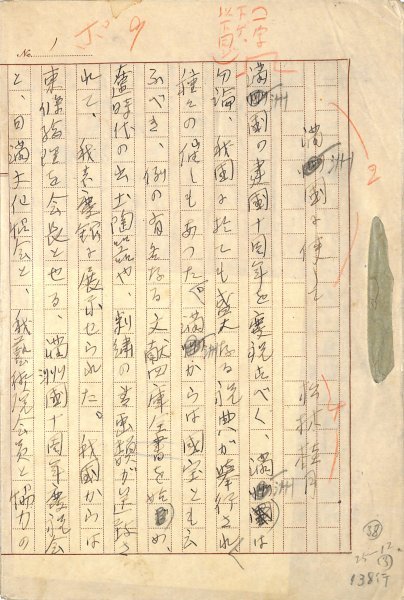 No. 1
ポ9
一字下
2
4
満洲国に使して
松林桂月
満洲国の建国十周年を慶祝すべく、満洲国は
勿論、我国に於ても盛大なる祝典が挙行され
種々の催しもあつたが、満洲国からは国宝とも云
ふべき、例の有名なる文献四庫全書を始め、
遼時代の出土陶器や、刺繍の書画類が送致さ
れて、我表慶館に展示せられた。我国からは
東條総理を会長とせる、満洲国十周年慶祝会
と、日満文化協会と、我藝術院会員と協力の
38
25-12
(3)
138行